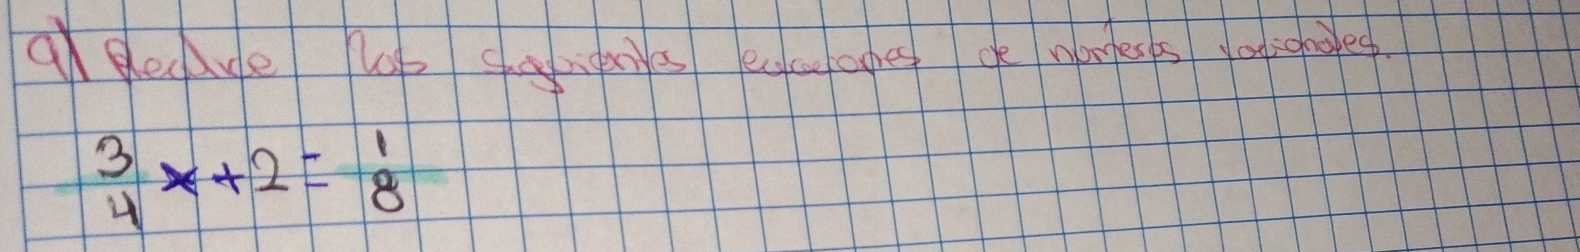 a) Reclve los siguientes ecuaciones de nomeros racionales.
3/4 x + 2 = 1/8